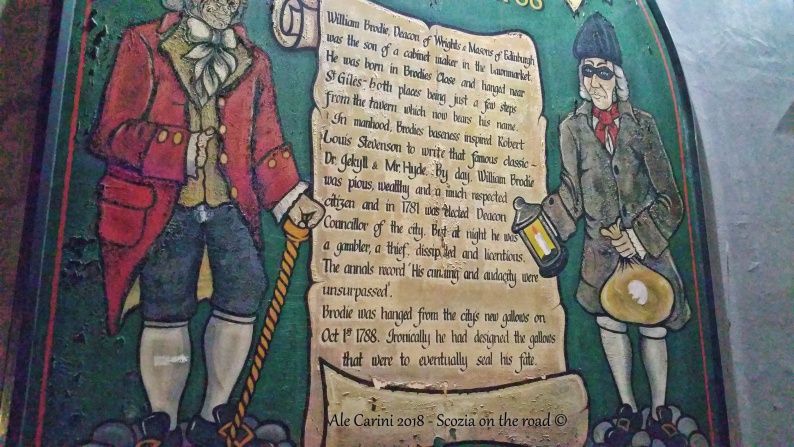 William Brodie, Deacon of Wrights & Masons of Edinburgh
was the son of a cabinet maker in the Lawnmarket.
He was born in Brodies Close and hanged near
St Giles - both places being just a few steps
from the tavern which now bears his name.
In manhood, Brodies baseness inspired Robert
Louis Stevenson to write that famous classic -
Dr. Jekyll & Mr. Hyde. By day, William Brodie
was pious, wealthy and a much respected
citizen and in 1781 was elected Deacon
Councillor of the city. But at night he was
a gambler, a thief, dissipated and licentious.
The annals record 'His cunning and audacity were
unsurpassed'.
Brodie was hanged from the citys new gallows on
Oct 1st 1788. Ironically he had designed the gallows
that were to eventually seal his fate.
Ale Carini 2018 - Scozia on the road ©